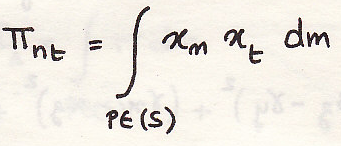 π_{nt} = ∫_{P∈(S)} x_n x_t dm